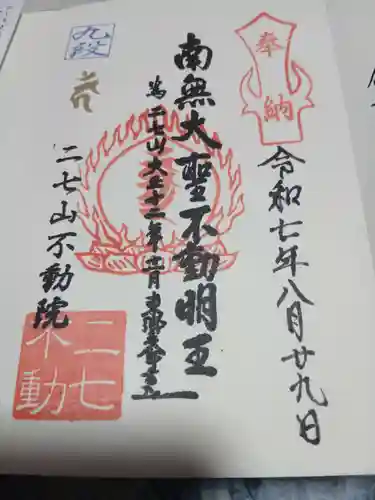 奉納
令和七年八月廿九日
南無大聖不動明王
二七山不動院
九段
二七不動